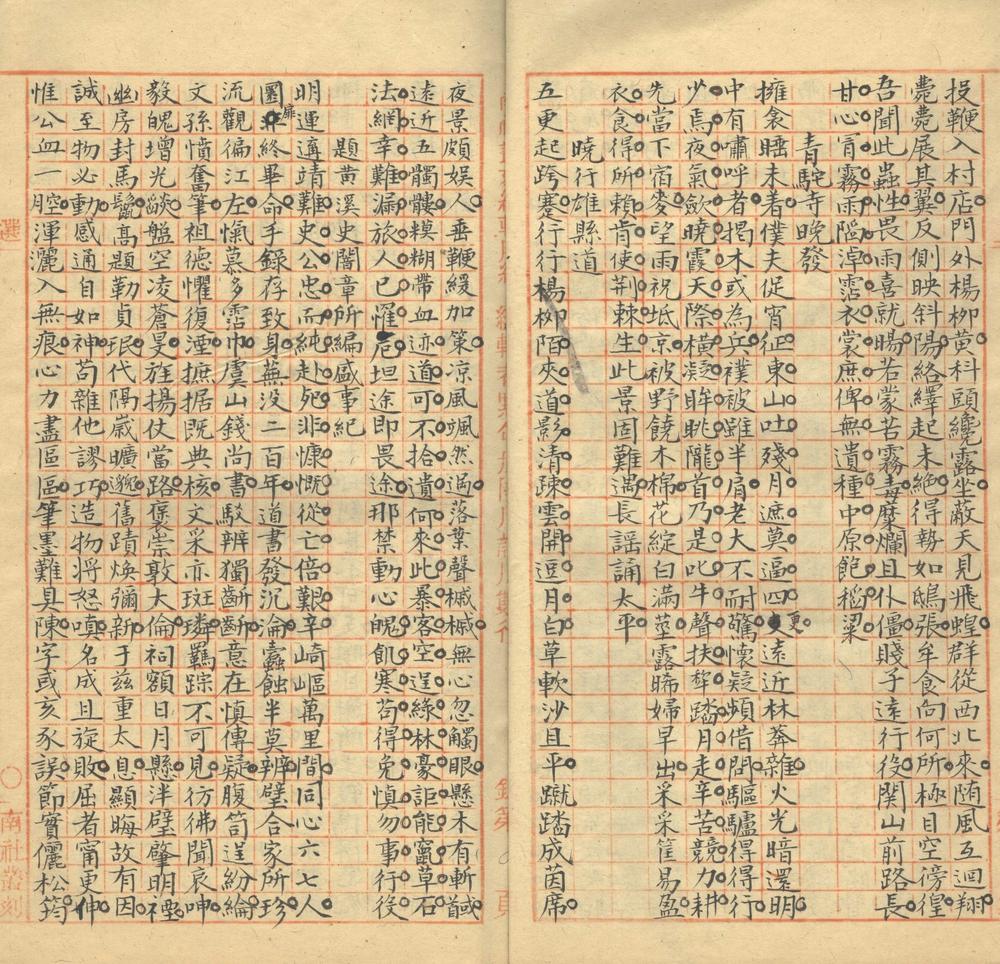 投鞭入村店門外楊柳黃科頭纔露坐蔽天見飛蝗群從西北來随風互迴翔
薨薨展其翼反側映斜陽絡繹起未絕得勢如鴟張牟食向何所極目空傍徨
吾聞此蟲性畏雨喜就暘若蒙苦霧毒糜爛且仆僵賤子遠行役関山前路長
甘心冐霧雨隂淖霑衣裳庶俾無遺種中原飽稻粱
青駝寺晚發
擁衾睡未着僕夫促宵征東山吐殘月遮莫逼四更遠近林莽雜火光暗還明
中有嘯呼者揭木或為兵襆被雖半肩老大不耐驚懷疑頻借問驅驢得得行
少焉夜氣斂曉霞天際橫凝眸眺隴首乃是叱牛聲扶犂踏月走辛苦競力耕
先當下宿麥望雨祝坻京被野饒木棉花綻白滿莖露晞婦早出采采筐易盈
衣食得所賴肯使荆棘生此景固難遇長謡誦太平
曉行雄縣道
五更起跨蹇行行楊栁陌夾道影清疎雲開逗月白草軟沙且平蹴踏成茵席
夜景頗娱人垂鞭緩加策凉風颯然過落葉聲槭槭無心忽觸眼懸木有斬馘
遠近五髑髏糢糊帶血迹道可不拾遺何來此暴客空逞綠林豪詎能竄草石
法網幸難漏旅人已罹厄坦途即畏途那禁動心魄飢寒苟得免慎勿事行役
題黃溪史闇章所編盛事紀
明運遘靖難史公忠而純赴死非慷慨從亡倍艱辛崎嶇萬里間同心六七人
圜扉終畢命手録存致身蕪没二百年道書發沉淪蠹蝕半莫辨璧合家所珍
流觀徧江左愾慕多霑巾虞山錢尚書駁辨獨齗齗意在慎傳疑腹笥逞紛綸
文孫憤奮筆祖德懼復湮摭据既典核文采亦斑璘羈踪不可見彷彿聞哀呻
毅魄增光燄盤空凌蒼旻旌揚仗當路褒崇敦大倫祠額日月懸泮璧肇明禋
幽房封馬鬛高題勒貞珉代隔嵗曠邈舊蹟煥彌新于兹重太息顯晦故有因
誠至物必動感通自如神苟雜他謬巧造物将怒嗔名成且旋敗屈者甯更伸
惟公血一腔渾灑入無痕心力盡區區筆墨難具陳字或亥豕誤節實儷松筠
選
〇
南社叢刻